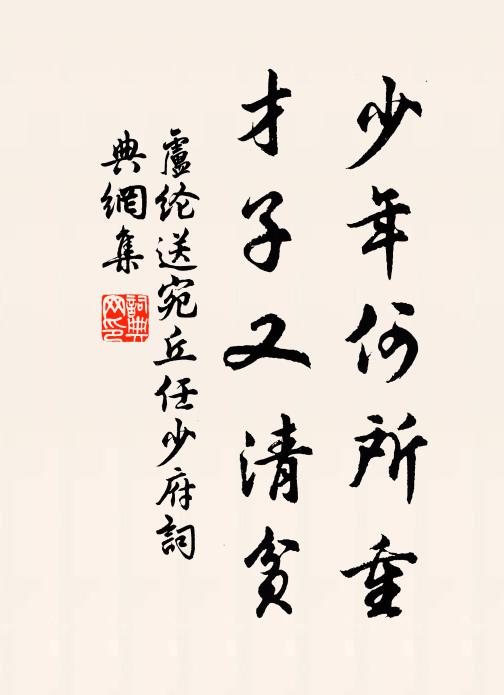 少年何所重
才子又清貧
盧纶送宛丘任少府詞
典網集
詞典
网印